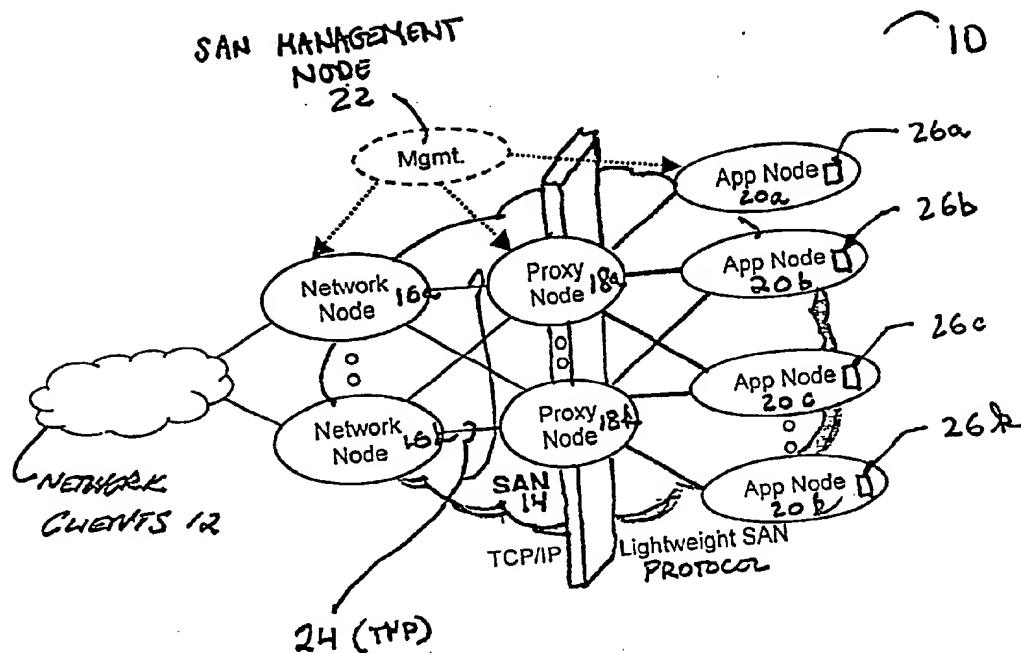 SAN MANAGEMENT
NODE
22
10
Mgmt.
26a
App Node
20a
26b
App Node
20b
Network
Node
16a
Proxy
Node
18a
26c
App Node
20c
Network
Node
Proxy
Node
18k
26k
App Node
20k
NETWORK
CLIENTS 12
SAN
14
TCP/IP
Lightweight SAN
PROTOCOL
24 (TNP)